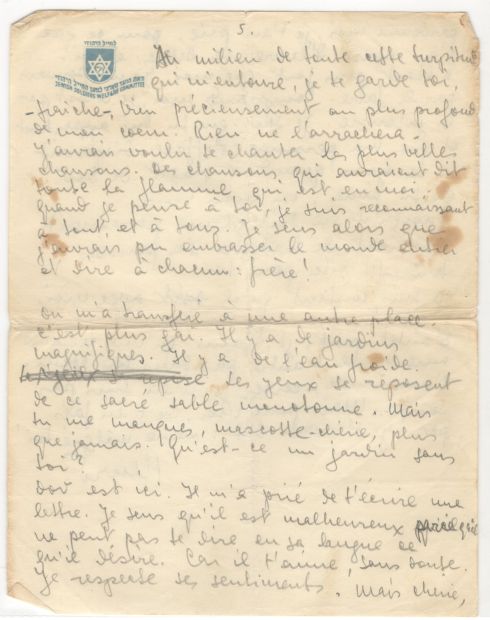 5.
לחייל היהודי
JEWISH SOLDIERS WELFARE COMMITTEE
Au milieu de toute cette turpitude
qui m'entoure, je te garde toi,
-fraiche-, bien précieusement au plus profond
de mon coeur. Rien ne l'arrachera.
J'aurais voulu te chanter les plus belles
chansons. Des chansons qui auraient dit
toute la flamme qui est en moi.
quand je pense à toi, je suis reconnaissant
à tout et à tous. Je sens alors que
j'aurais pu embrasser le monde entier
et dire à chacun: frère!
On m'a transféré à une autre place.
c'est plus gai. Il y a de jardins
magnifiques. Il y a de l'eau froide.
les yeux se reposent
de ce sacré sable monotonne. Mais
tu me manques, mascotte-chérie, plus
que jamais. Qu'est-ce un jardin sans
toi?
Dov est ici. Il m'a prié de t'écrire une
lettre. Je sens qu'il est malheureux parcequ'il
ne peut pas te dire en sa langue ce
qu'il désire. Car il t'aime, sans doute.
Je respecte ses sentiments. Mais chérie,